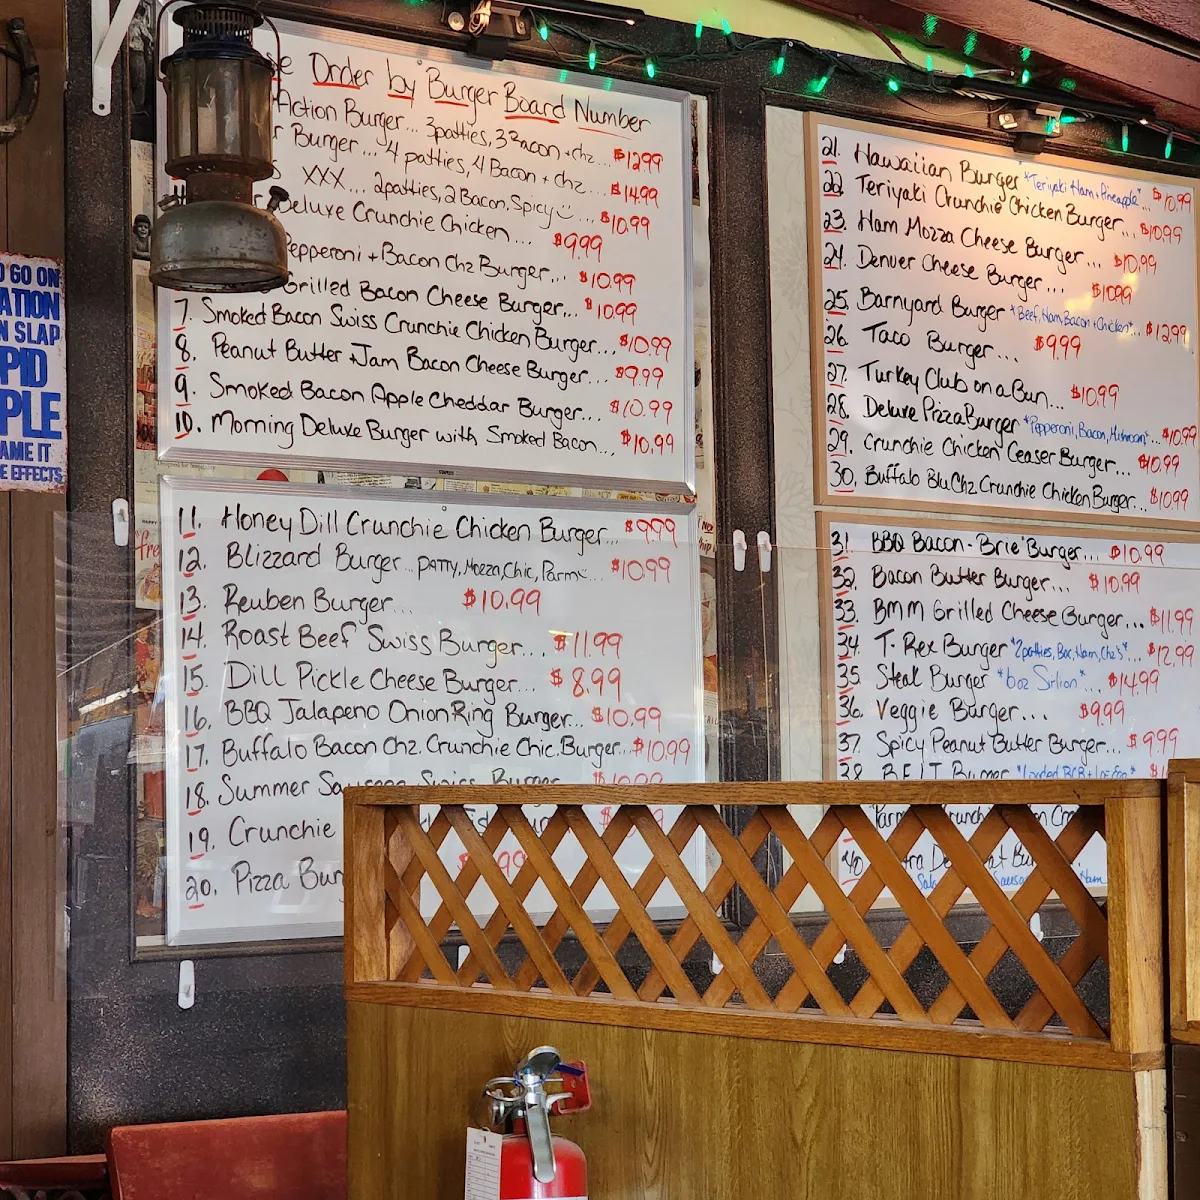 Order by Burger Board Number
Action Burger... 3patties, 3 Bacon + chz... $12.99
Burger... 4 patties, 4 Bacon + Chz... $14.99
XXX... 2patties, 2 Bacon, Spicy... $10.99
Deluxe Crunchie Chicken... $9.99
Pepperoni + Bacon Chz Burger... $10.99
Grilled Bacon Cheese Burger... $10.99
7. Smoked Bacon Swiss Crunchie Chicken Burger... $10.99
8. Peanut Butter + Jam Bacon Cheese Burger... $9.99
9. Smoked Bacon Apple Cheddar Burger... $10.99
10. Morning Deluxe Burger with Smoked Bacon... $10.99
11. Honey Dill Crunchie Chicken Burger... $9.99
12. Blizzard Burger... Patty, Mozza, Chic, Parm... $10.99
13. Reuben Burger... $10.99
14. Roast Beef Swiss Burger... $11.99
15. Dill Pickle Cheese Burger... $8.99
16. BBQ Jalapeno Onion Ring Burger... $10.99
17. Buffalo Bacon Chz. Crunchie Chic. Burger... $10.99
18. Summer Sausage Swiss Burger $10.99
19. Crunchie
20. Pizza Bur
21. Hawaiian Burger "Teriyaki Ham + Pineapple"... $10.99
22. Teriyaki Crunchie Chicken Burger... $10.99
23. Ham Mozza Cheese Burger... $10.99
24. Denver Cheese Burger... $10.99
25. Barnyard Burger "Beef, Ham, Bacon + Chicken"... $12.99
26. Taco Burger... $9.99
27. Turkey Club on a Bun... $10.99
28. Deluxe Pizza Burger "Pepperoni, Bacon, Mushroom"... $10.99
29. Crunchie Chicken Ceaser Burger... $10.99
30. Buffalo Blu Chz Crunchie Chicken Burger... $10.99
31. BBQ Bacon - Brie Burger... $10.99
32. Bacon Butter Burger... $10.99
33. BMM Grilled Cheese Burger... $11.99
34. T. Rex Burger "2patties, Bac, Ham, Chz's"... $12.99
35. Steak Burger "6oz Sirlion"... $14.99
36. Veggie Burger... $9.99
37. Spicy Peanut Butter Burger... $9.99
38. B.E.L.T. Burger
40.
GO ON
ATION
N SLAP
PID
PLE
AME IT
E EFFECTS